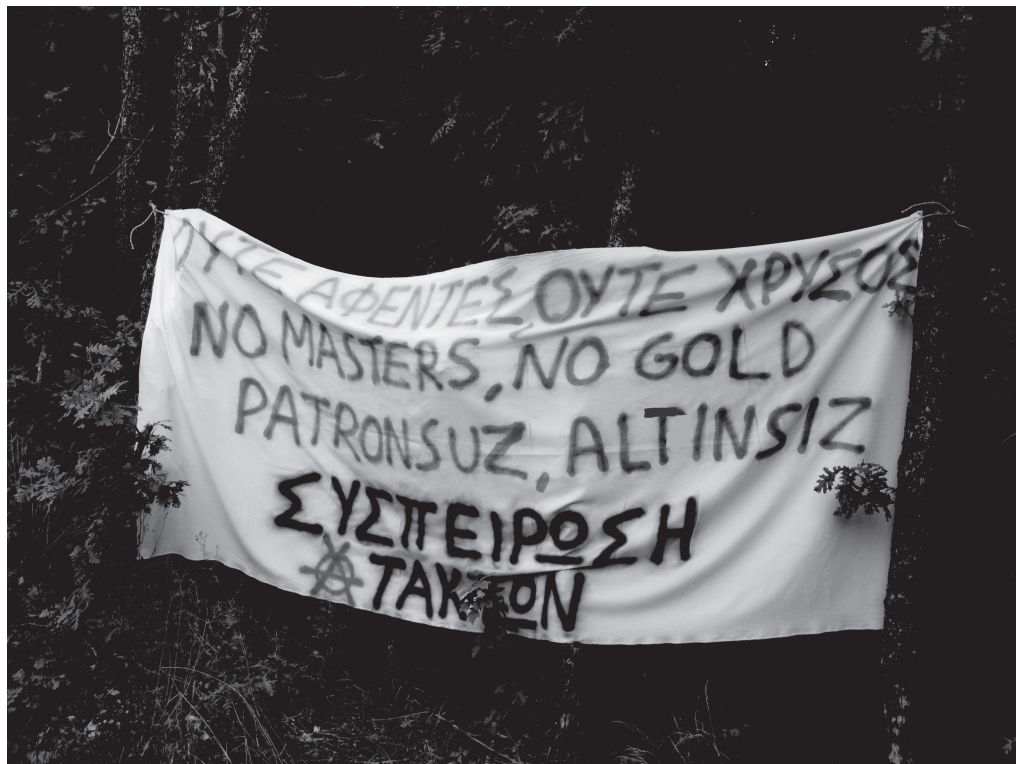 ΟΥΤΕ ΑΦΕΝΤΕΣ ΟΥΤΕ ΧΡΥΣΟΣ
NO MASTERS, NO GOLD
PATRONSUZ, ALTINSIZ
ΣΥΣΠΕΙΡΩΣΗ
ΑΤΑΚΤΩΝ